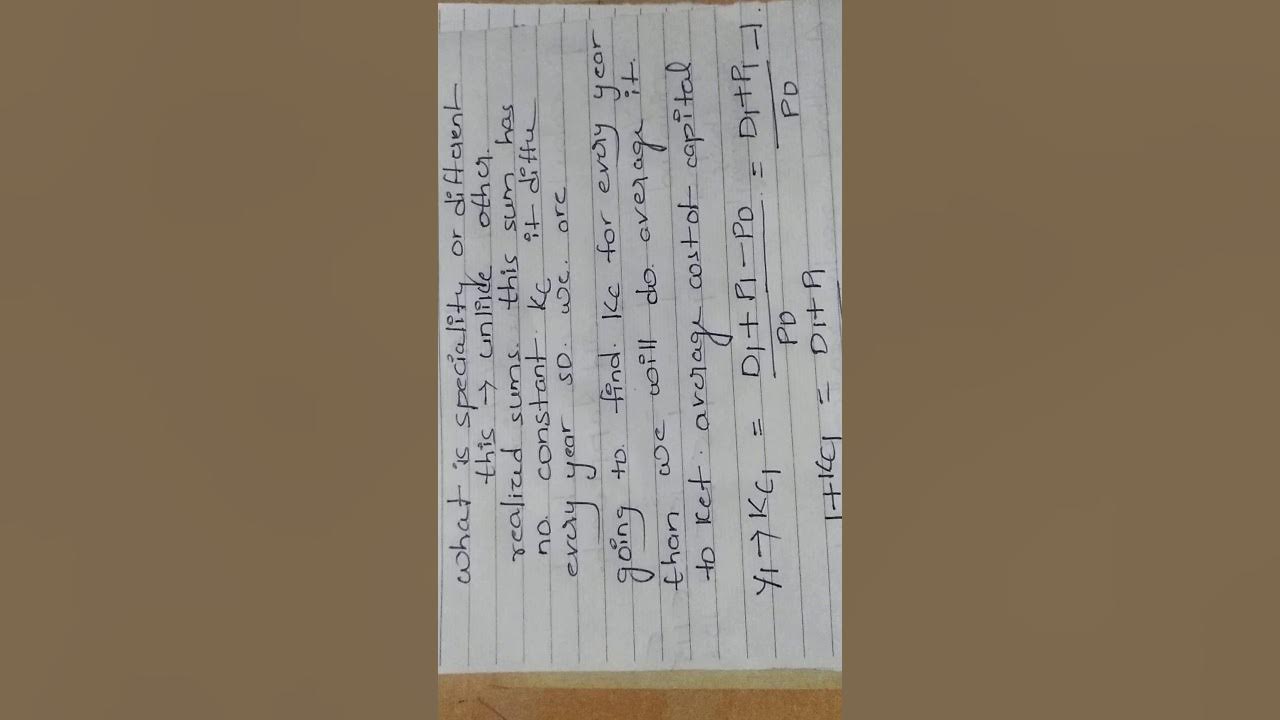 what is speciality or different
this → unlike other
realized sums this sum has
no. constant Ke it diffu
every year so we are
going to find Ke for every year
than we will do average it.
to Ket average cost of capital
Y1 → Ke1 = D1 + P1 - P0 / P0 = D1 + P1 / P0 - 1.
1 + Ke1 = D1 + P1